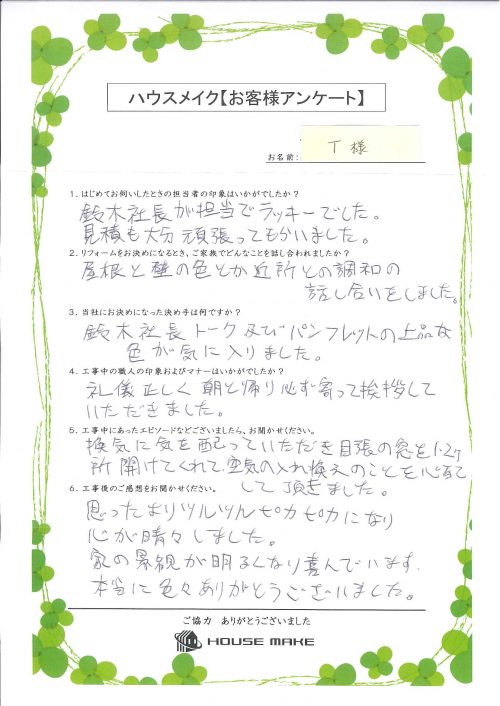 ハウスメイク【お客様アンケート】
お名前: T 様
1．はじめてお伺いしたときの担当者の印象はいかがでしたか?
鈴木社長が担当でラッキーでした。
見積も大分頑張ってもらいました。
2．リフォームをお決めになるとき、ご家族でどんなことを話し合われましたか?
屋根と壁の色とか近所との調和の
話し合いをしました。
3．当社にお決めになった決め手は何ですか?
鈴木社長トーク及びパンフレットの上品な
色が気に入りました。
4．工事中の職人の印象およびマナーはいかがでしたか?
礼儀正しく朝と帰り必ず寄って挨拶して
いただきました。
5．工事中にあったエピソードなどございましたら、お聞かせください。
換気に気を配っていただき目張の窓を1~2ヶ
所開けてくれて空気の入れ換えのことを
して頂きました。
6．工事後のご感想をお聞かせください。
思ったよりツルツルピカピカになり
心が晴々しました。
家の景観が明るくなり喜んでいます。
本当に色々ありがとうございました。
ご協力 ありがとうございました
HOUSE MAKE